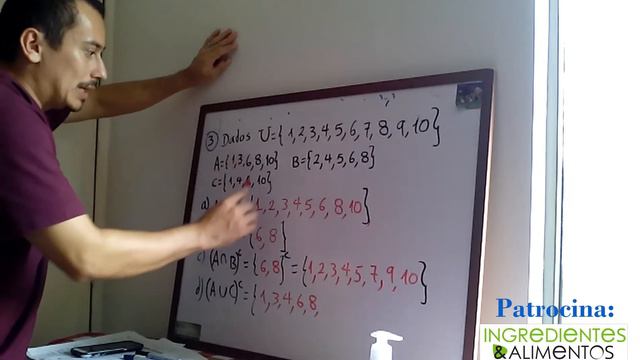 ③ Dados U={1,2,3,4,5,6,7,8,9,10}
A={1,3,6,8,10} B={2,4,5,6,8}
C={1,4,6,10}
a) {1,2,3,4,5,6,8,10}
{6,8}
c) (A∩B)ᶜ={6,8}ᶜ={1,2,3,4,5,7,9,10}
d) (A∪C)ᶜ={1,3,4,6,8,
Patrocina:
INGREDIENTES
&ALIMENTOS